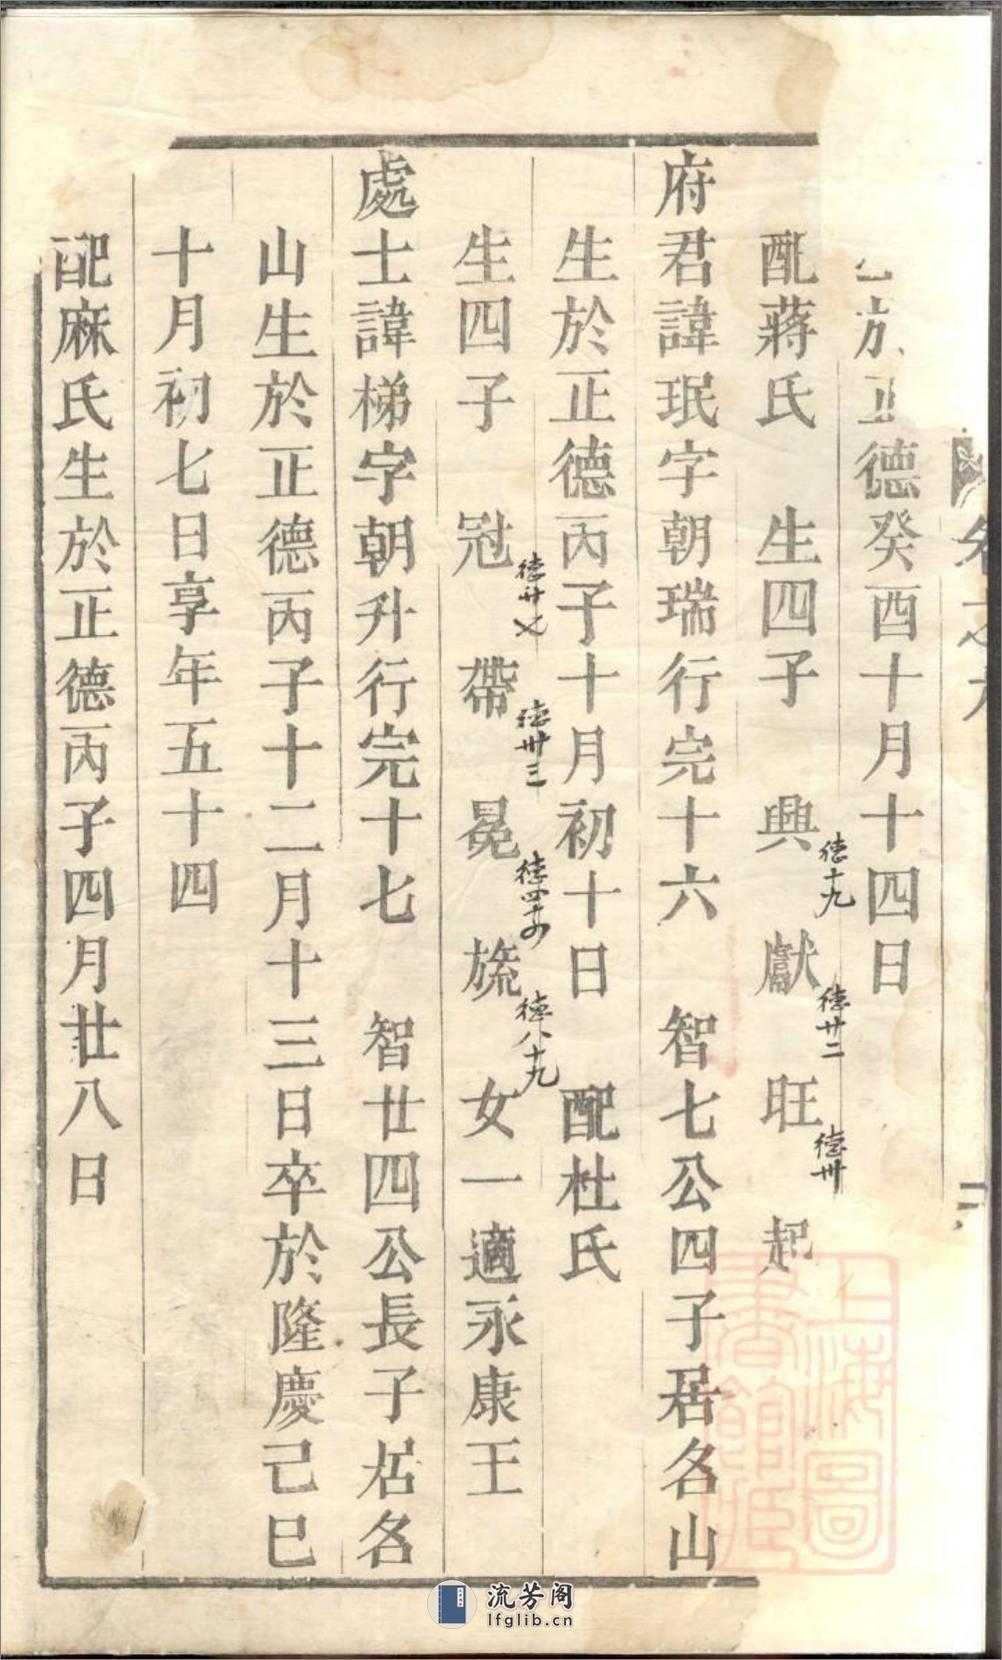 卷之九
於正德癸酉十月十四日
配蔣氏 生四子 興 德十九 獻 德廿二 旺 德卅 起
府君諱珉字朝瑞行完十六 智七公四子居名山
生於正德丙子十月初十日 配杜氏
生四子 冠 德廿七 帶 德卅三 冕 旒 德八十九 女一適永康王
處士諱梯字朝升行完十七 智廿四公長子居名
山生於正德丙子十二月十三日卒於隆慶己巳
十月初七日享年五十四
配麻氏生於正德丙子四月廿八日
上海圖
書館藏
流芳阁
lfglib.cn